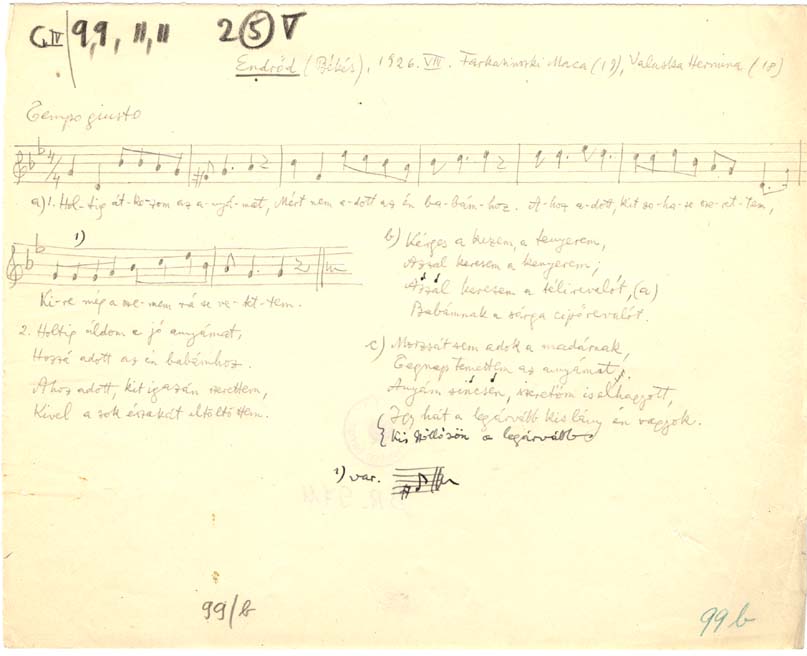 C.IV 9,9, 11, 11 2 5 V
Endrőd (Békés), 1926. VII. Farkasinszki Maca (19), Valuska Hermina (18)
Tempo giusto
a) 1. Hol-tig át-ko-zom az a-nyá-mat, Mért nem a-dott az én ba-bám-hoz. A-hoz a-dott, kit so-ha-se sze-ret-tem,
1)
Ki-re még a sze-mem rá se ve-tet-tem.
2. Holtig áldom a jó anyámat,
Hozzá adott az én babámhoz.
Ahoz adott, kit igazán szerettem,
Kivel a sok éjszakát eltöltöttem.
b) Kérges a kezem, a tenyerem,
Azzal keresem a kenyerem;
Azzal keresem a télirevalót, (a)
Babámnak a sárga cipőrevalót.
c) Morzsát sem adok a madárnak,
Tegnap temettem az anyámat;
Anyám sincsen, szeretőm is elhagyott,
Így hát a legárvább kislány én vagyok.
Kis a legárvább
1) var.
99/b
99b